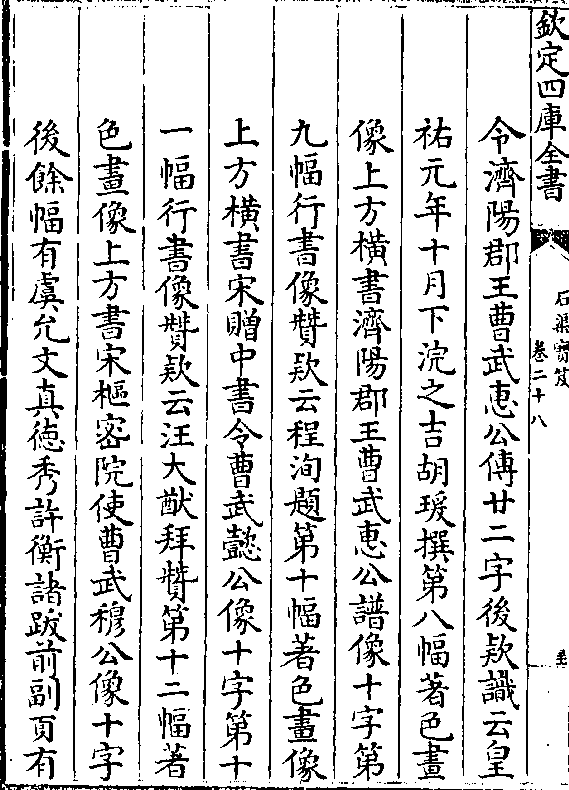 欽定四庫全書
石渠寶笈
卷二十八
令濟陽郡王曹武惠公傳廿二字後欵識云皇
祐元年十月下浣之吉胡瑗撰第八幅著色畫
像上方橫書濟陽郡王曹武惠公譜像十字第
九幅行書像贊欵云程洵題第十幅著色畫像
上方橫書宋贈中書令曹武懿公像十字第十
一幅行書像贊欵云汪大猷拜贊第十二幅著
色畫像上方書宋樞密院使曹武穆公像十字
後餘幅有虞允文真德秀許衡諸跋前副頁有